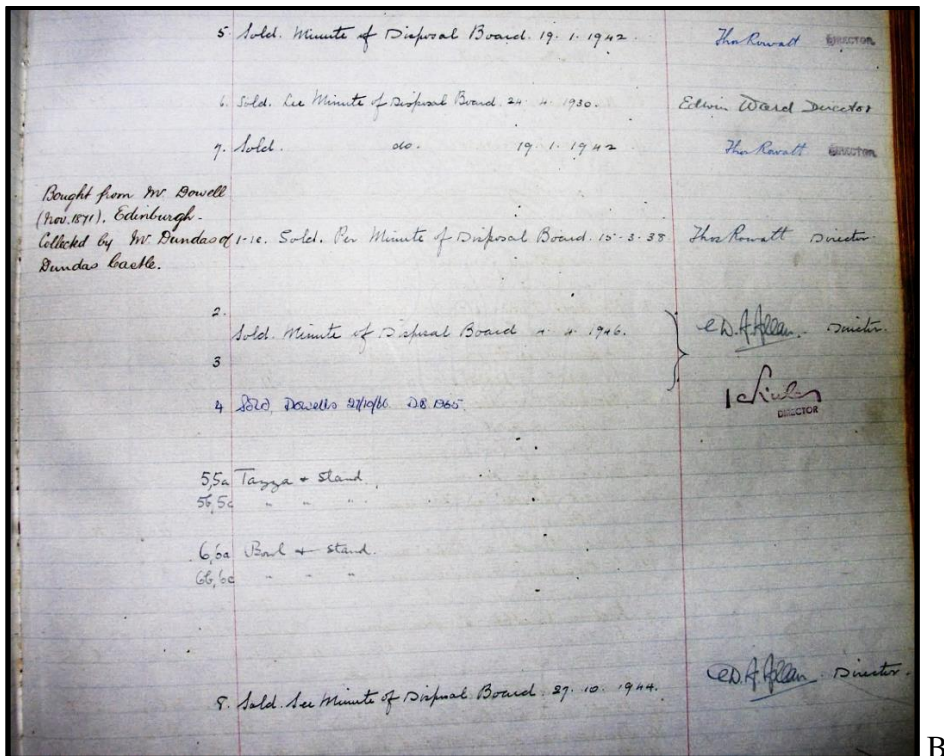 5. Sold. Minute of Disposal Board. 19. 1. 1942. Thos Rowatt DIRECTOR
6. Sold. See Minute of Disposal Board. 24. 4. 1930. Edwin Ward Director
7. Sold. do. 19. 1. 1942 Thos Rowatt DIRECTOR
Bought from Mr Dowell
(Nov. 1871). Edinburgh.
Collected by Mr. Dundas of 1-1c. Sold. Per Minute of Disposal Board. 15-3-38 Thos Rowatt Director.
Dundas Castle.
2.
Sold. Minute of Disposal Board 4. 4. 1946. D. A. Allan. Director.
3
4 Sold, Dowells 27/10/66. DB 1965. DIRECTOR
5,5a Tazza + Stand.
5b,5c " " "
6,6a Bowl + Stand.
6b,6c " " "
8. Sold. See Minute of Disposal Board. 27. 10. 1944. D. A. Allan Director.
B